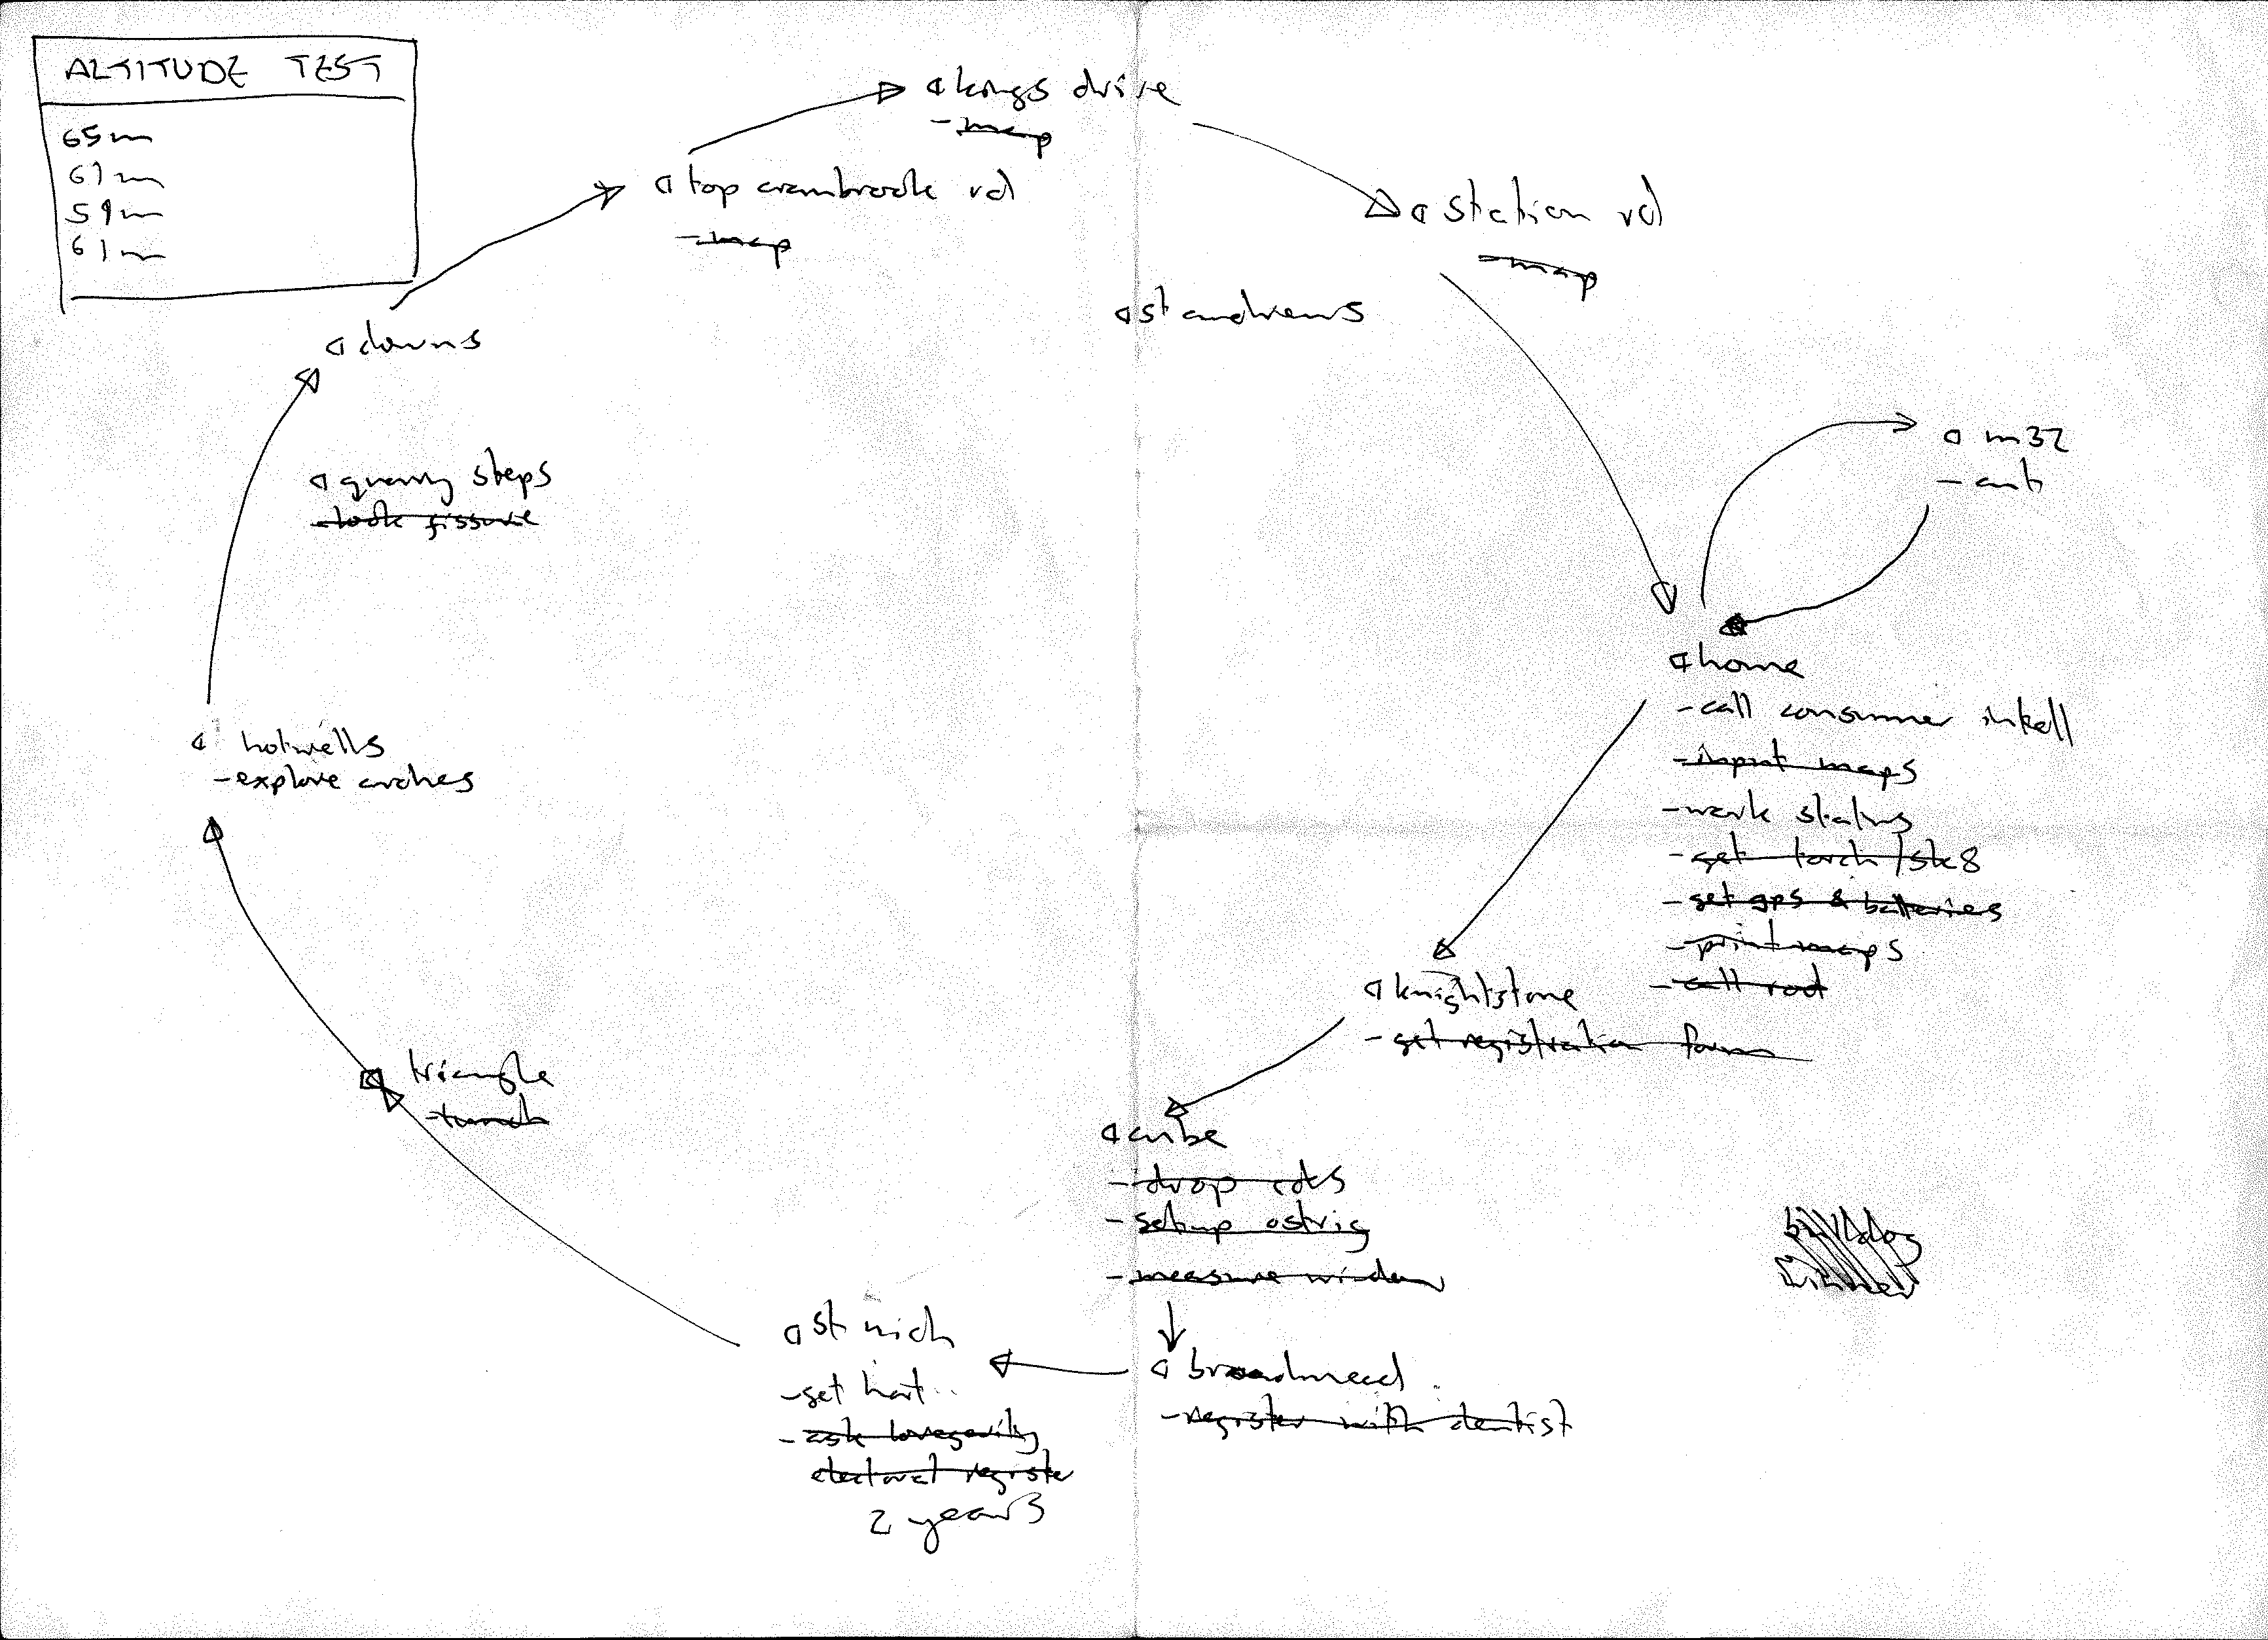 ALTITUDE TEST
65m
61m
59m
61m
kings drive
-map
top crambrook rd
-map
station rd
-map
st andrews
downs
m32
quarry steps
-look fissure
home
-call consumer
-input maps
-work status
-get torch/sk8
-get gps & batteries
-print maps
-call rod
hotwells
-explore arches
knightstone
-get registration form
triangle
cube
-drop
-setup
-measure window
st nich
-get hat
-ask longevity
electoral register
2 years
broadmead
-register with dentist
bulldog